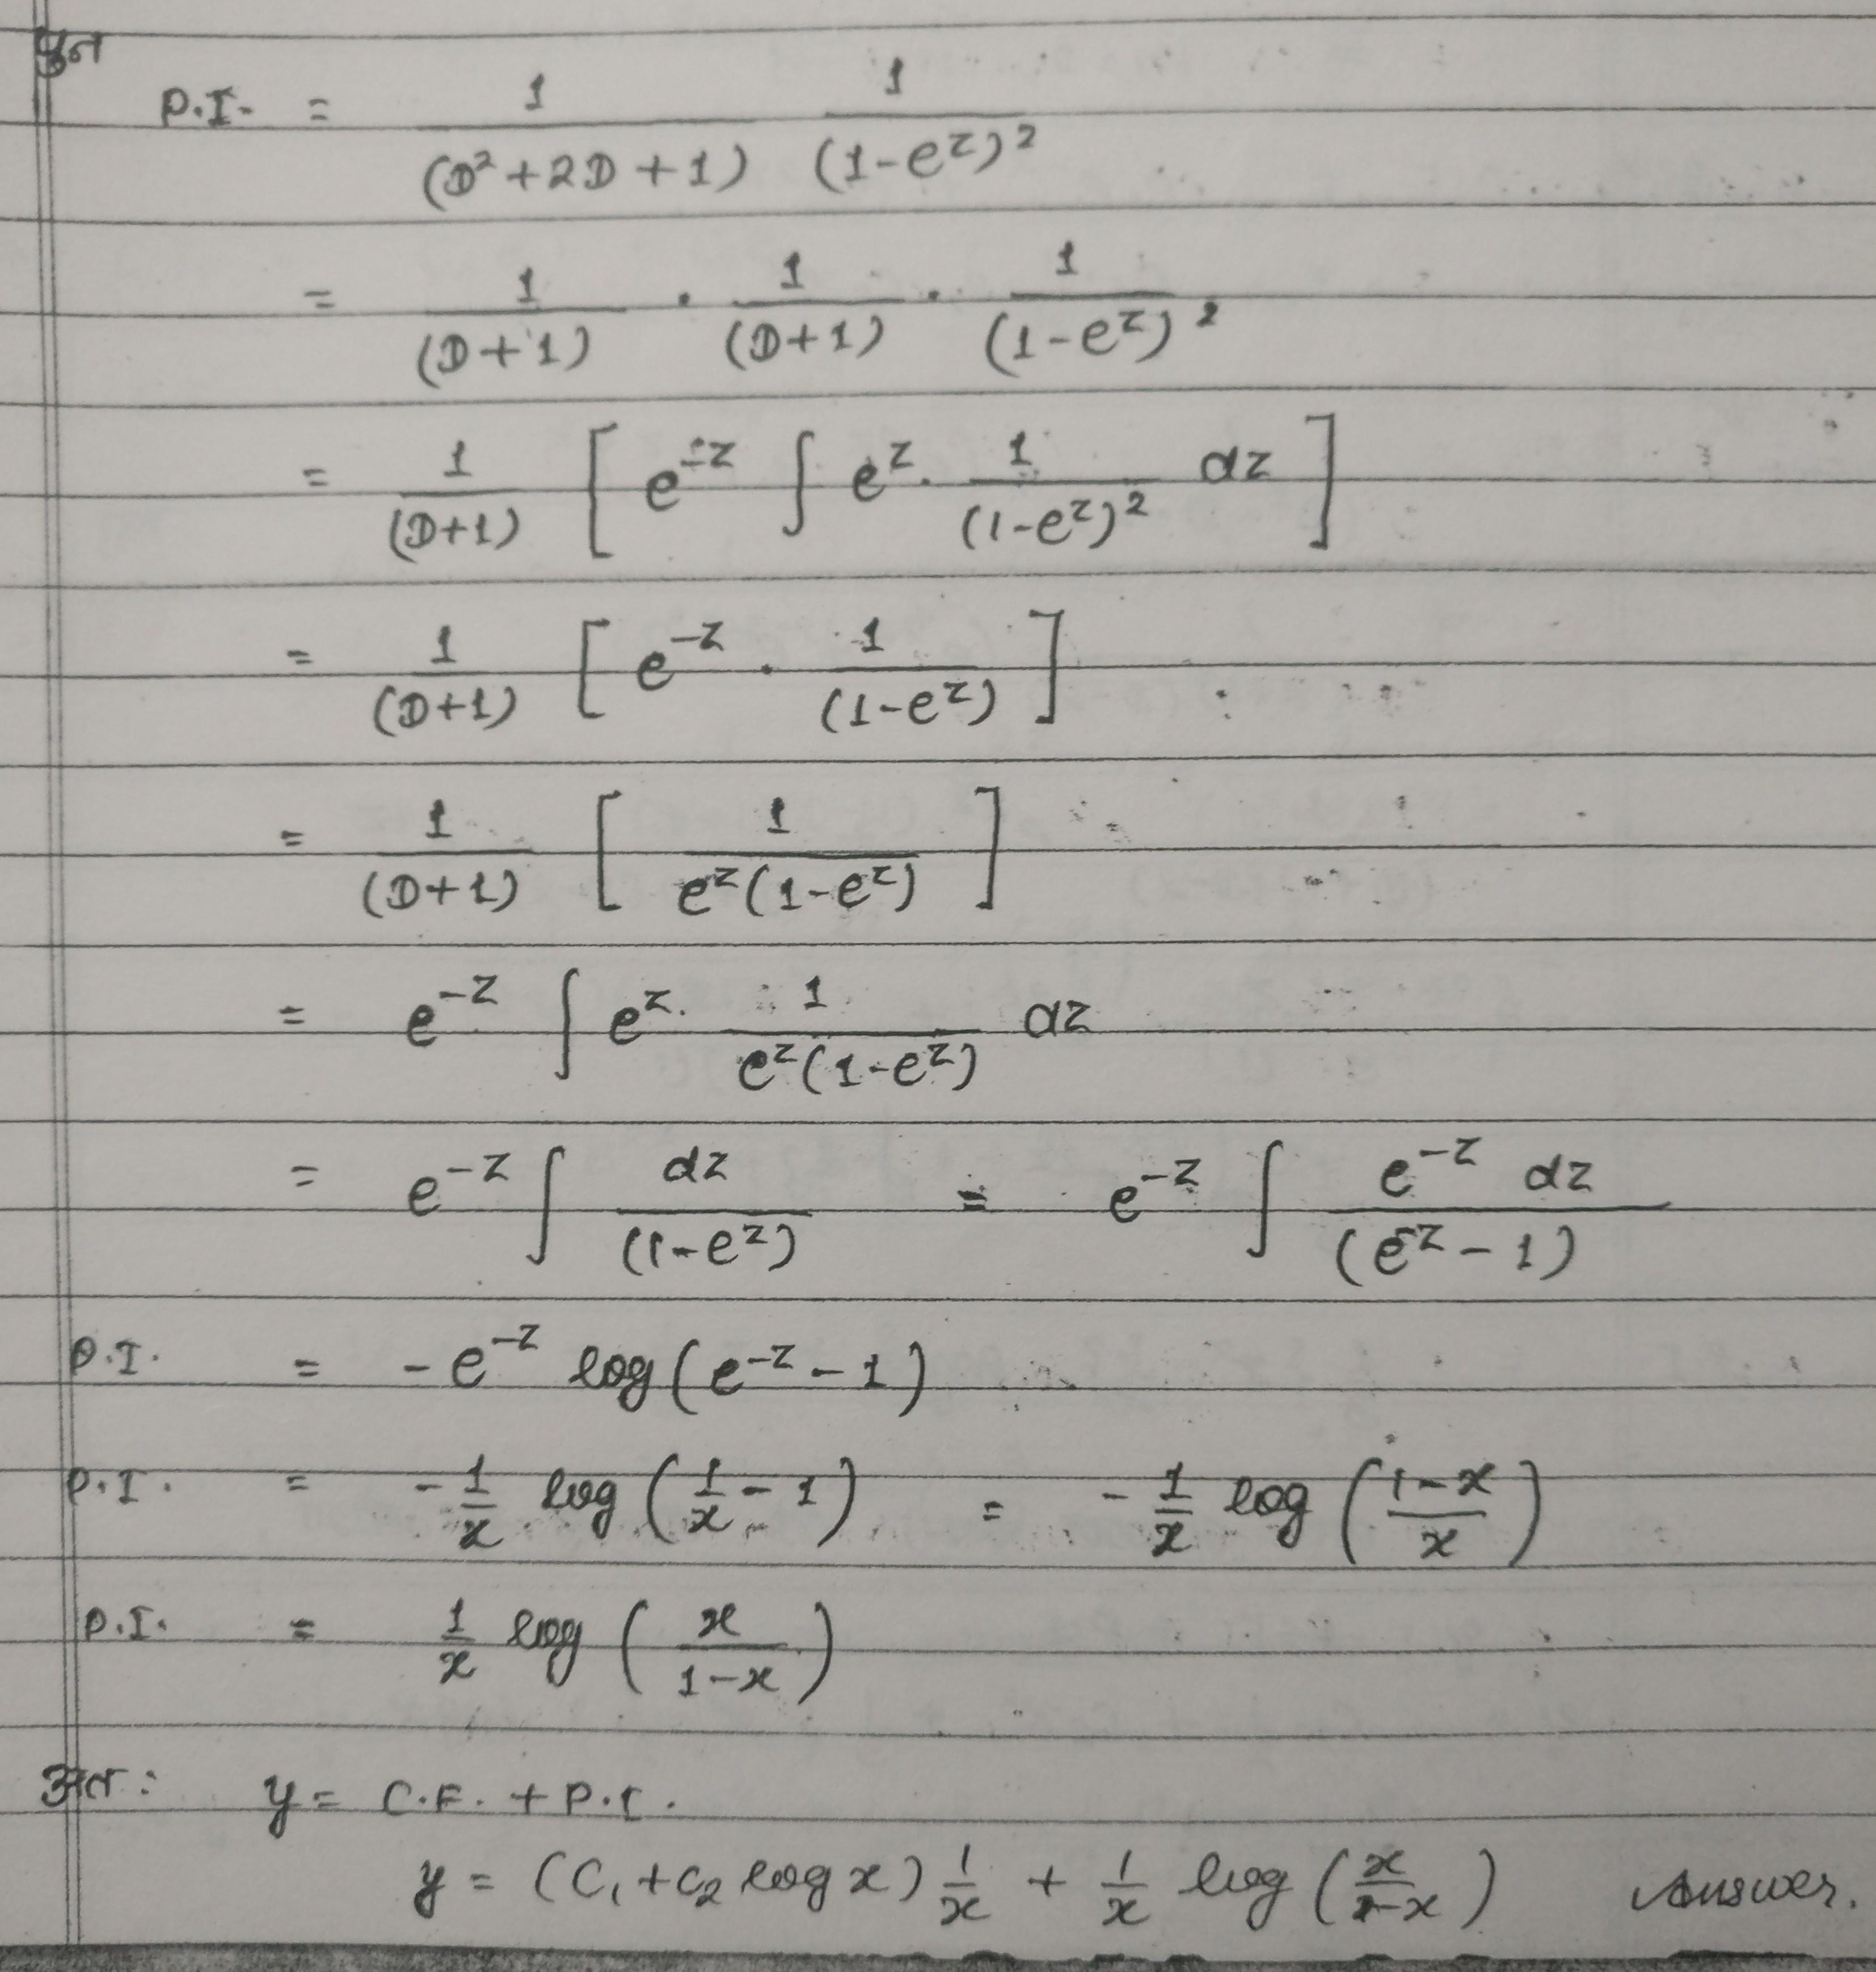 पुनः
P.I. = 1/(D²+2D+1) 1/(1-e^z)²
= 1/(D+1) · 1/(D+1) · 1/(1-e^z)²
= 1/(D+1) [ e^-z ∫ e^z · 1/(1-e^z)² dz ]
= 1/(D+1) [ e^-z · 1/(1-e^z) ]
= 1/(D+1) [ 1/(e^z(1-e^z)) ]
= e^-z ∫ e^z · 1/(e^z(1-e^z)) dz
= e^-z ∫ dz/(1-e^z) = e^-z ∫ e^-z dz/(e^-z - 1)
P.I. = -e^-z log(e^-z - 1)
P.I. = -1/x log(1/x - 1) = -1/x log((1-x)/x)
P.I. = 1/x log(x/(1-x))
अतः y = C.F. + P.I.
y = (C₁+C₂ log x) 1/x + 1/x log(x/(1-x)) Answer.